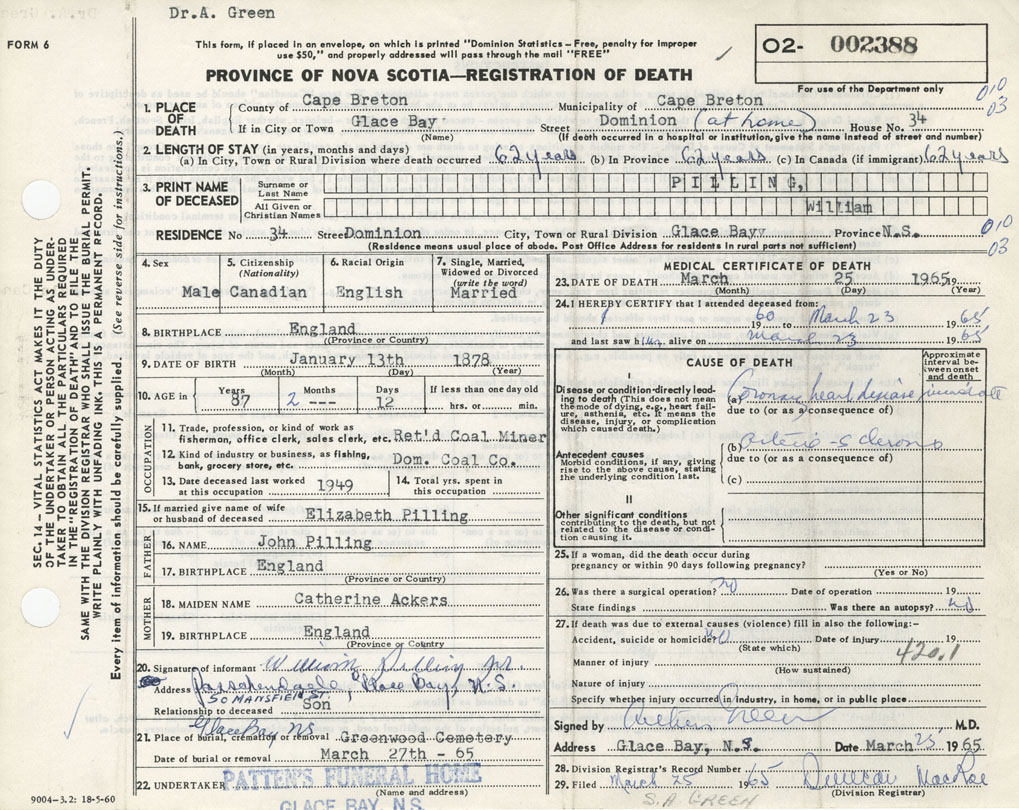 Dr.A. Green
FORM 6
This form, if placed in an envelope, on which is printed "Dominion Statistics – Free, penalty for improper
use $50," and properly addressed will pass through the mail "FREE"
O2- 002388
For use of the Department only
PROVINCE OF NOVA SCOTIA—REGISTRATION OF DEATH
010
03
1. PLACE OF DEATH
County of Cape Breton Municipality of Cape Breton
If in City or Town Glace Bay Street Dominion (at home) House No. 34
(Name) (If death occurred in a hospital or institution, give the name instead of street and number)
2. LENGTH OF STAY (in years, months and days)
(a) In City, Town or Rural Division where death occurred 62 years (b) In Province 62 years (c) In Canada (if immigrant) 62 years
3. PRINT NAME OF DECEASED
Surname or Last Name PILLING,
All Given or Christian Names William
RESIDENCE No 34 Street Dominion City, Town or Rural Division Glace Bay Province N.S.
(Residence means usual place of abode. Post Office Address for residents in rural parts not sufficient)
010
03
4. Sex Male
5. Citizenship (Nationality) Canadian
6. Racial Origin English
7. Single, Married, Widowed or Divorced (write the word) Married
8. BIRTHPLACE England
(Province or Country)
9. DATE OF BIRTH January 13th 1878
(Month) (Day) (Year)
10. AGE in Years 87 Months 2 --- Days 12 If less than one day old hrs. or min.
OCCUPATION
11. Trade, profession, or kind of work as
fisherman, office clerk, sales clerk, etc. Ret'd Coal Miner
12. Kind of industry or business, as fishing,
bank, grocery store, etc. Dom. Coal Co.
13. Date deceased last worked at this occupation 1949
14. Total yrs. spent in this occupation
15. If married give name of wife
or husband of deceased Elizabeth Pilling
FATHER
16. NAME John Pilling
17. BIRTHPLACE England
(Province or Country)
MOTHER
18. MAIDEN NAME Catherine Ackers
19. BIRTHPLACE England
(Province or Country)
20. Signature of informant William Pilling Jr.
Address Passchendaele, Glace Bay, N.S.
50 MANSFIELD ST.
Relationship to deceased Son
Glace Bay NS
21. Place of burial, cremation or removal Greenwood Cemetery
Date of burial or removal March 27th - 65
22. UNDERTAKER PATTEN'S FUNERAL HOME
(Name and address)
GLACE BAY, N.S.
MEDICAL CERTIFICATE OF DEATH
23. DATE OF DEATH March 25 1965 19
(Month) (Day) (Year)
24. I HEREBY CERTIFY that I attended deceased from:
19 60 to March 23 19 65
and last saw him alive on March 23 19 65
CAUSE OF DEATH
Approximate interval between onset and death
I
Disease or condition directly leading to death (This does not mean the mode of dying, e.g., heart failure, asthenia, etc. It means the disease, injury, or complication which caused death.)
(a) Coronary heart disease immediate
due to (or as a consequence of)
(b) Arterio-sclerosis
due to (or as a consequence of)
Antecedent causes
Morbid conditions, if any, giving rise to the above cause, stating the underlying condition last.
(c)
II
Other significant conditions
contributing to the death, but not related to the disease or condition causing it.
25. If a woman, did the death occur during
pregnancy or within 90 days following pregnancy?
(Yes or No)
26. Was there a surgical operation? No Date of operation 19
State findings Was there an autopsy? No
27. If death was due to external causes (violence) fill in also the following:–
Accident, suicide or homicide? No Date of injury 19
(State which)
420.1
Manner of injury
(How sustained)
Nature of injury
Specify whether injury occurred in industry, in home, or in public place
Signed by Arthur Green M.D.
Address Glace Bay, N.S. Date March 25, 1965
28. Division Registrar's Record Number
29. Filed March 25 1965 Duncan MacRae
(Division Registrar)
S. A GREEN
SEC. 14 – VITAL STATISTICS ACT MAKES IT THE DUTY
OF THE UNDERTAKER OR PERSON ACTING AS UNDER-
TAKER TO OBTAIN ALL THE PARTICULARS REQUIRED
IN THE "REGISTRATION OF DEATH" AND TO FILE THE
SAME WITH THE DIVISION REGISTRAR WHO SHALL ISSUE THE BURIAL PERMIT.
WRITE PLAINLY WITH UNFADING INK. THIS IS A PERMANENT RECORD.
Every item of information should be carefully supplied. (See reverse side for instructions.)
9004-3.2: 18-5-60